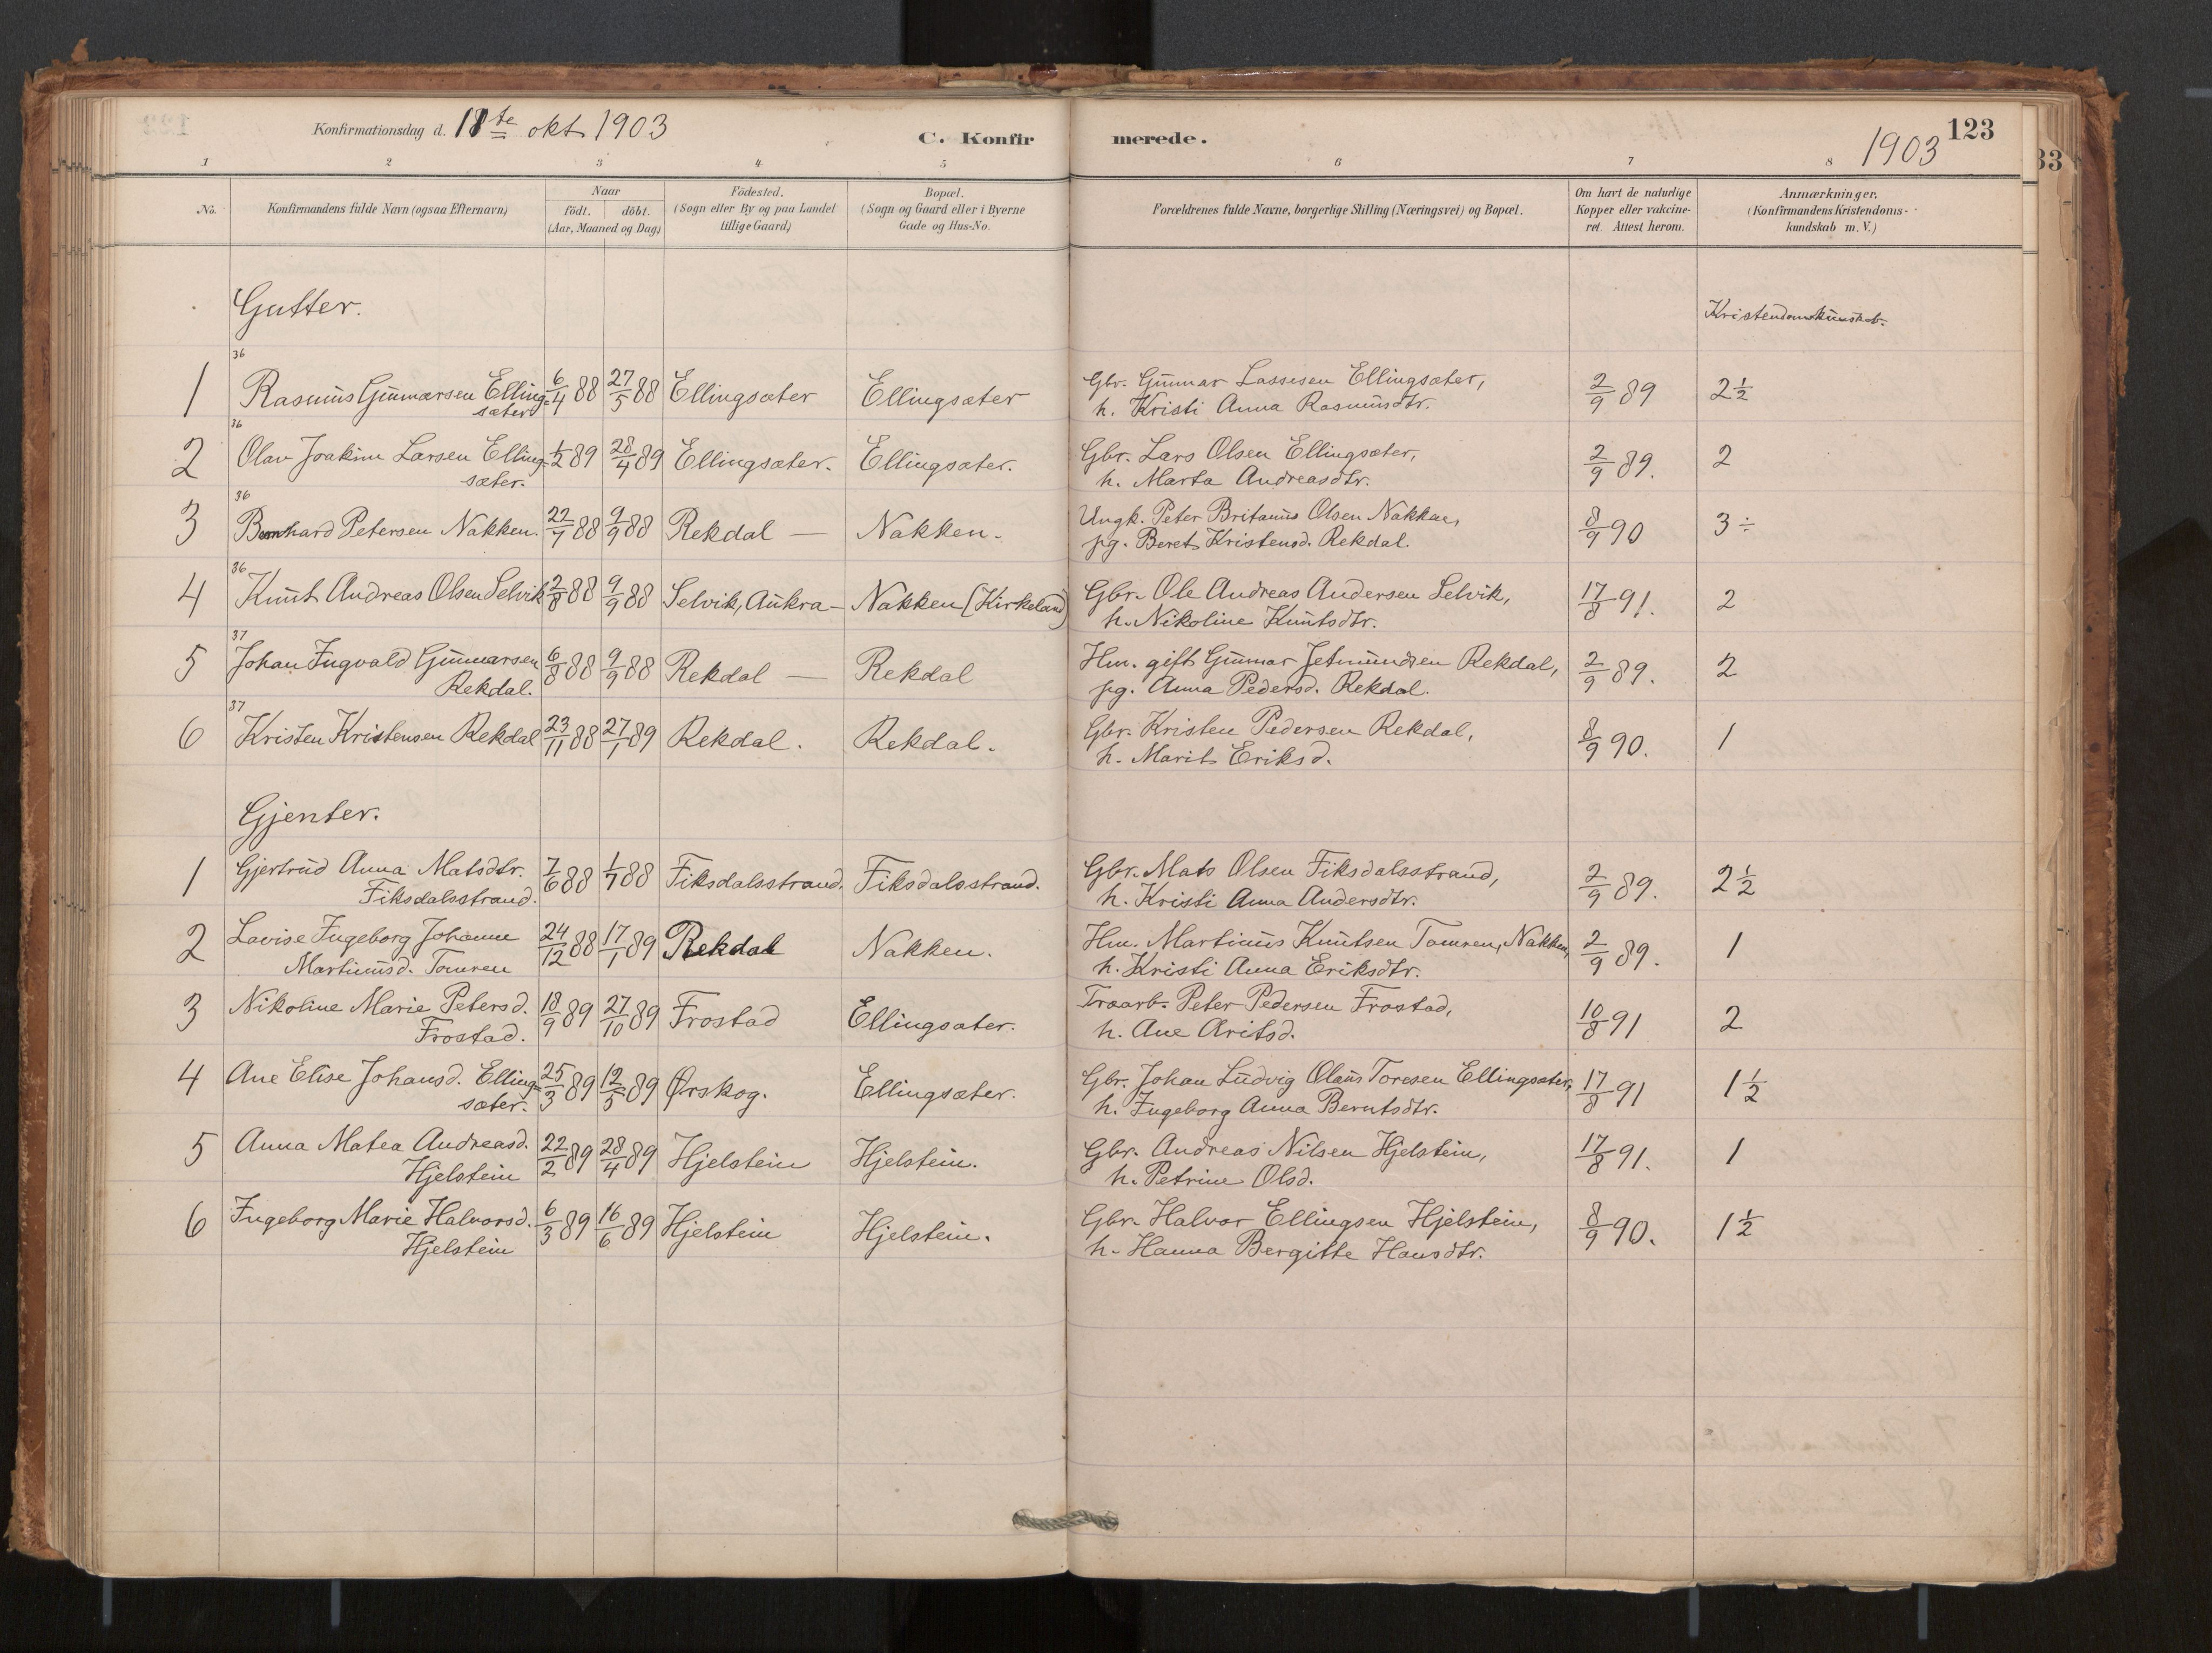 Konfirmationsdag d. 18te okt 1903
C. Konfirmerede.
1903
123
33
1 2 3 4 5 6 7 8
No.
Konfirmandens fulde Navn (ogsaa Efternavn)
Naar
födt. döbt.
(Aar, Maaned og Dag)
Födested.
(Sogn eller By og paa Landet
tillige Gaard)
Bopæl.
(Sogn og Gaard eller i Byerne
Gade og Hus-No.
Forældrenes fulde Navne, borgerlige Stilling (Næringsvei) og Bopæl.
Om havt de naturlige
Kopper eller vakcine-
ret. Attest herom.
Anmærkninger.
(Konfirmandens Kristendoms-
kundskab m. V.)
Gutter.
Kristendomskunskab.
36
1 Rasmus Gunnarsen Elling- 6/4 88 27/5 88 Ellingsæter Ellingsæter Gbr. Gunnar Lassesen Ellingsæter, 2/9 89 2 1/2
sæter h. Kristi Anna Rasmusdtr.
36
2 Olav Joakim Larsen Elling- 1/2 89 28/4 89 Ellingsæter. Ellingsæter. Gbr. Lars Olsen Ellingsæter, 2/9 89. 2
sæter. h. Marta Andreasdtr.
36
3 Bernhard Petersen Nakken. 22/7 88 9/9 88 Rekdal — Nakken. Ungk. Peter Britanus Olsen Nakken, 8/9 90 3 ÷
pg. Beret Kristensd. Rekdal.
36
4 Knut Andreas Olsen Selvik 2/8 88 9/9 88 Selvik, Aukra — Nakken (Kirkeland) Gbr. Ole Andreas Andersen Selvik, 17/8 91. 2
h. Nikoline Knutsdtr.
37
5 Johan Ingvald Gunnarsen 6/8 88 9/9 88 Rekdal — Rekdal Hm. gift Gunnar Jetmundsen Rekdal, 2/9 89. 2
Rekdal. pg. Anna Pedersd. Rekdal.
37
6 Kristen Kristensen Rekdal 23/11 88 27/1 89 Rekdal. Rekdal. Gbr. Kristen Pedersen Rekdal, 8/9 90. 1
h. Marit Eriksd.
Gjenter.
1 Gjertrud Anna Matsdtr. 7/6 88 1/7 88 Fiksdalsstrand. Fiksdalsstrand. Gbr. Mats Olsen Fiksdalsstrand, 2/9 89. 2 1/2
Fiksdalsstrand. h. Kristi Anna Andersdtr.
2 Lovise Ingeborg Johanne 24/12 88 17/1 89 Rekdal Nakken. Hm. Martinus Knutsen Tomren, Nakken, 2/9 89. 1
Martinusd. Tomren h. Kristi Anna Eriksdtr.
3 Nikoline Marie Petersd. 18/9 89 27/10 89 Frostad Ellingsæter. Træarb. Peter Pedersen Frostad, 10/8 91 2
Frostad. h. Ane Aritsd.
4 Ane Elise Johansd. Elling- 25/3 89 12/5 89 Ørskog. Ellingsæter. Gbr. Johan Ludvig Olaus Toresen Ellingsæter, 17/8 91 1 1/2
sæter. h. Ingeborg Anna Berntsdtr.
5 Anna Matea Andreasd. 22/2 89 28/4 89 Hjelstein Hjelstein. Gbr. Andreas Nilsen Hjelstein, 17/8 91. 1
Hjelstein h. Petrine Olsd.
6 Ingeborg Marie Halvorsd. 6/3 89 16/6 89 Hjelstein Hjelstein. Gbr. Halvor Ellingsen Hjelstein, 8/9 90. 1 1/2
Hjelstein h. Hanna Bergitte Hansdtr.